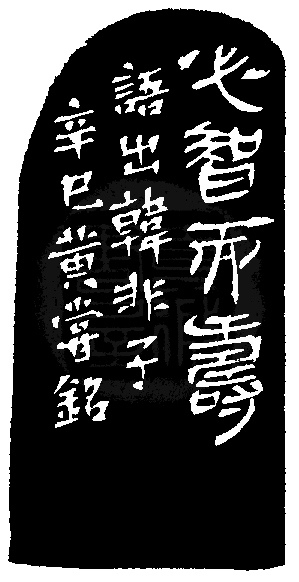 必智而壽
語出韓非子
辛巳黄嘗銘